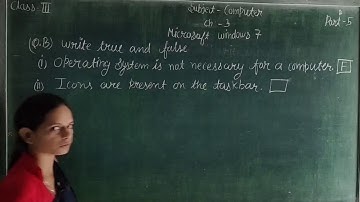 Class-III
Subject-Computer
Ch-3
Microsoft windows 7
Part-5
(Q.B) write true and false
(i) Operating System is not necessary for a computer. F
(ii) Icons are present on the taskbar.